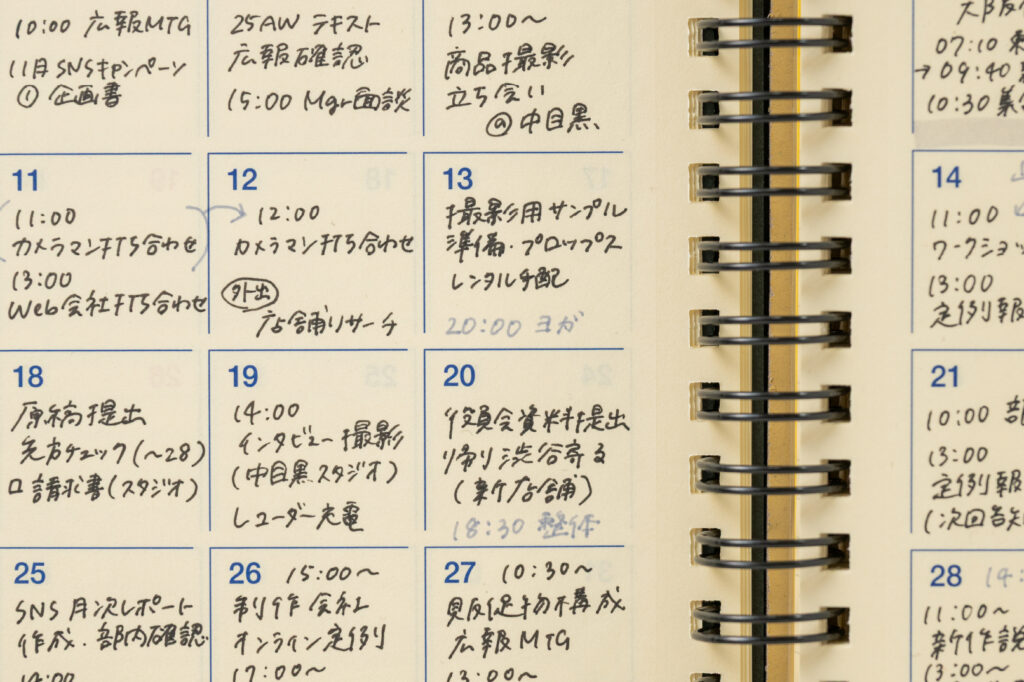 10:00 広報MTG
11月SNSキャンペーン
① 企画書
25AW テキスト
広報確認
15:00 Mgr面談
13:00〜
商品撮影
立ち会い
@中目黒
07:10
→09:40
10:30
11
11:00
カメラマン打ち合わせ
13:00
Web会社打ち合わせ
12
12:00
カメラマン打ち合わせ
外出
店舗リサーチ
13
撮影用サンプル
準備・プロップス
レンタル手配
20:00 ヨガ
14
11:00
ワークショッ
13:00
定例報
18
原稿提出
先方チェック(〜28)
□請求書(スタジオ)
19
14:00
インタビュー撮影
(中目黒スタジオ)
レコーダー充電
20
役員会資料提出
帰り渋谷寄る
(新店舗)
18:30 整体
21
10:00 部
13:00
定例報
(次回告知
25
SNS月次レポート
作成・部内確認
26 15:00〜
制作会社
オンライン定例
17:00〜
27 10:30〜
販促物構成
広報MTG
13:00〜
28 14:
11:00〜
新作説
13:00〜